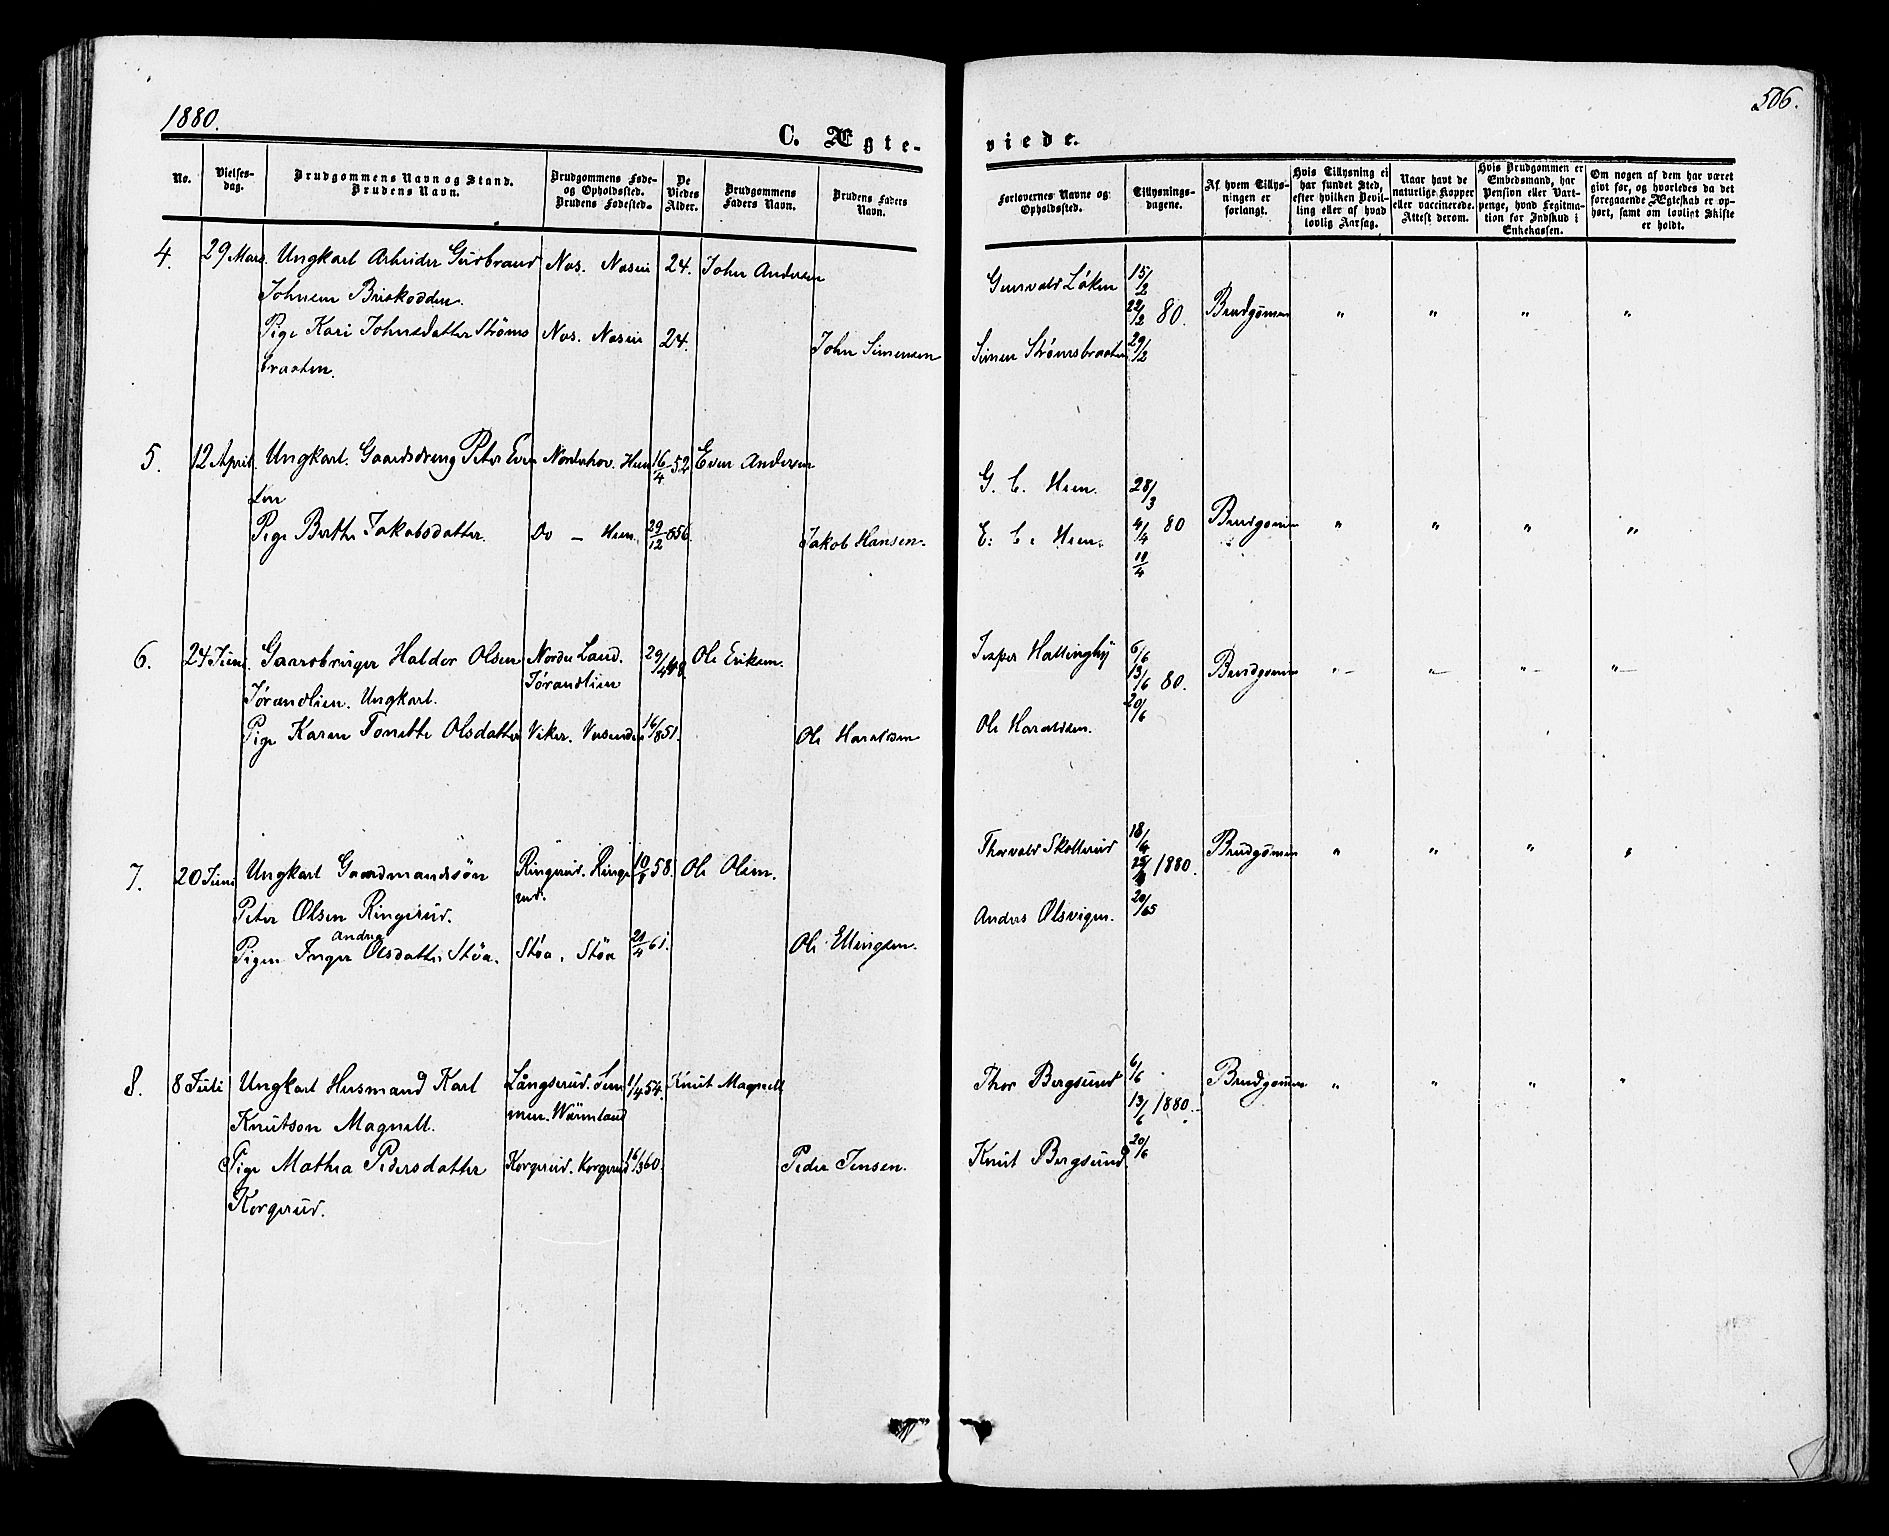 1880.
506.
C. Ægte-
viede.
No.
Vielses-
dag.
Brudgommens Navn og Stand.
Brudens Navn.
Brudgommens Føde-
og Opholdssted.
Brudens Fødested.
De
Viedes
Alder.
Brudgommens
Faders Navn.
Brudens Faders
Navn.
Forlovernes Navne og
Opholdssted.
Tillysnings-
dagene.
Af hvem Tillys-
ningen er
forlangt.
Hvis Tillysning ei
har fundet Sted,
efter hvilken Bevil-
ling eller af hvad
lovlig Aarsag.
Naar havt de
naturlige Kopper
eller vaccinerede.
Attest derom.
Hvis Brudgommen er
Embedsmand, har
Pension eller Vart-
penge, hvad Legitima-
tion for Indskud i
Enkekassen.
Om nogen af dem har været
gift før, og hvorledes da det
foregaaende Ægteskab er op-
hørt, samt om lovligt Skifte
er holdt.
4. 29 Mars Ungkarl Arbeider Gudbrand Nas. Nasen 24. John Andersen
Johnsen Briskodden.
Pige Kari Johnsdatter Strøms Nas. Nasen 24. John Simensen
braaten.
Gunvald Løken 15/2
22/2 80. Brudgomen " " " "
Simen Strømsbraaten 29/2
5. 12 April Ungkarl. Gaardsdreng Peter Even Norderhov. Heen 16/4 52 Even Andersen
sen
Pige Berthe Jakobsdatter. Do — Heen. 29/12 856. Jakob Hansen.
G. C. Heen. 28/3
E. C. Heen. 4/4 80 Brudgomen " " " "
11/4
6. 24 Juni Gaardbruger Haldor Olsen Nordre Land. 29/4 48. Ole Eriksen.
Jørandlien. Ungkarl. Jørandlien
Pige Karen Tonette Olsdatter Viker. Vesenden 16/8 51. Ole Haraldsen
Jesper Hallingby 6/6
13/6 80. Brudgomen " " " "
Ole Haraldsen. 20/6
7. 20 Juni Ungkarl Gaardmandssøn Ringerud. Ringe 10/8 58. Ole Olsen.
Peter Olsen Ringerud. rud.
Andrea
Pigen Inger Olsdatter Støa. Støa. Støa 21/4 61. Ole Ellingsen.
Thorvald Skollerud 18/4
25/4 1880. Brudgomen " " " "
Anders Olsvigen.
8. 8 Juli Ungkarl Husmand Karl Långserud. Sem 1/4 54. Knut Magnell
Knutson Magnell. men. Wärmland
Pige Mathea Pedersdatter Korgerud. Korgerud 16/3 60. Peder Jensen.
Korgerud.
Thor Bergsund 6/6
13/6 1880. Brudgomen " " " "
Knut Bergsund 20/6